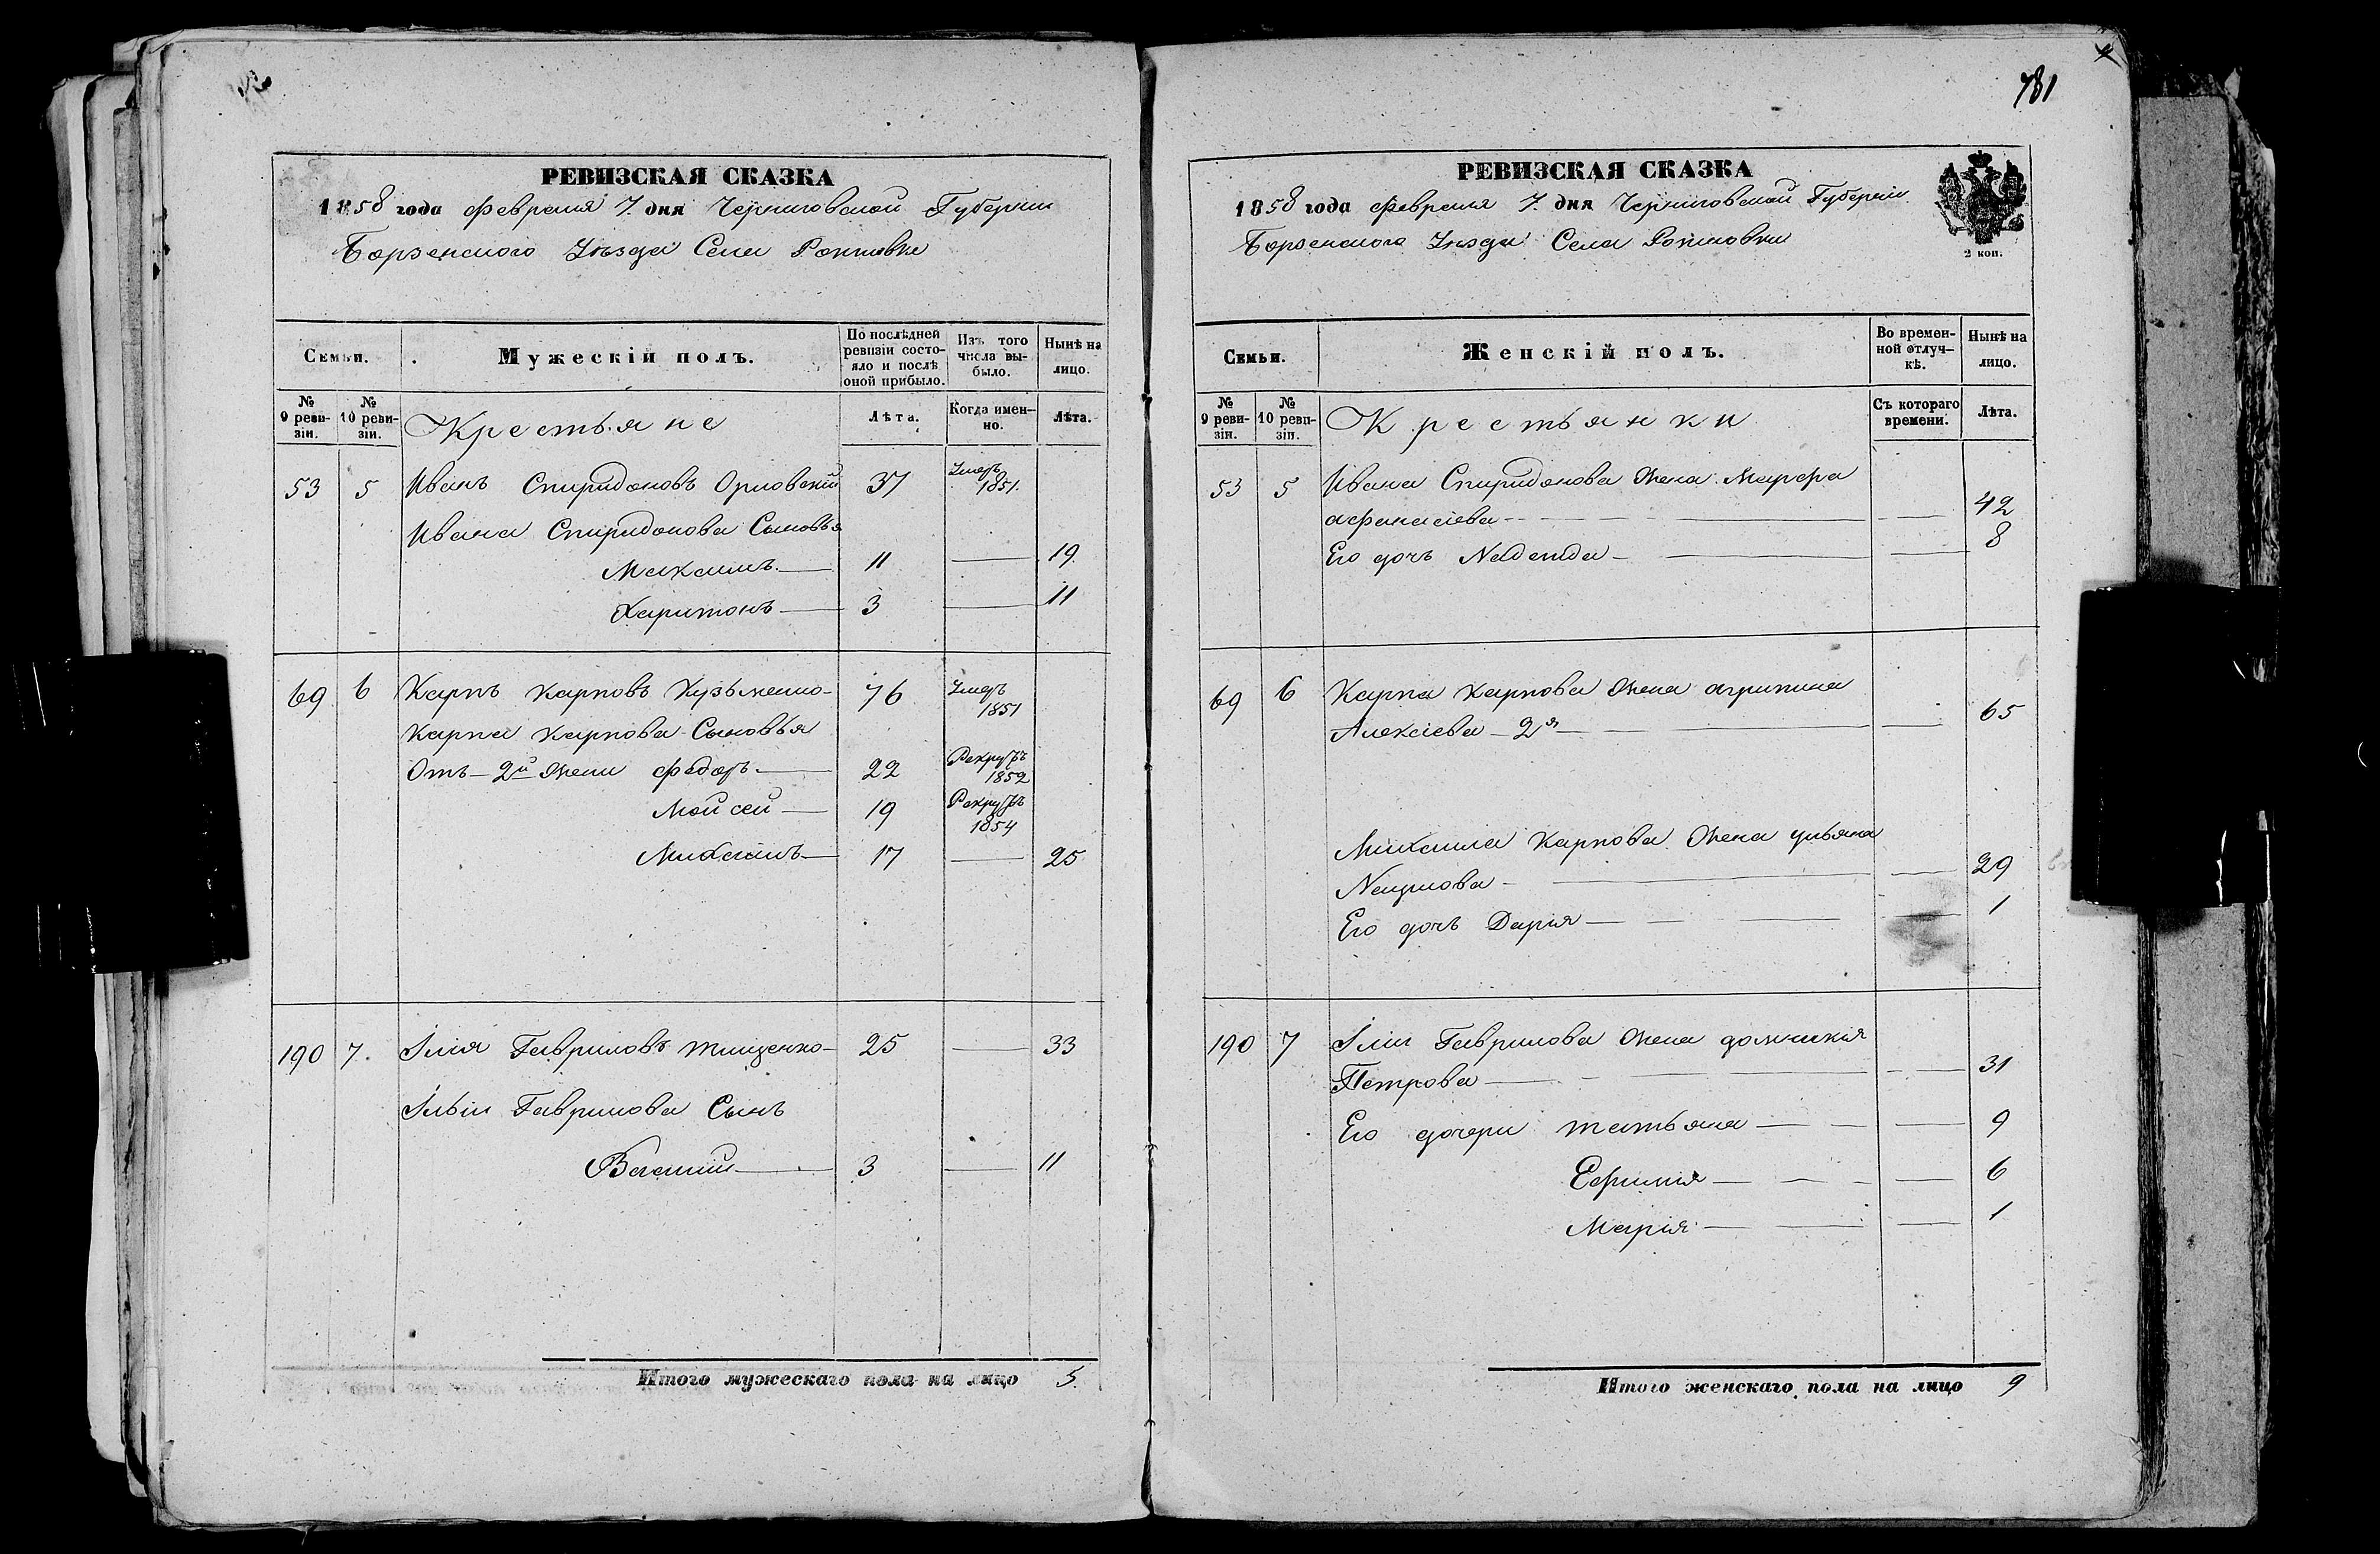 781
РЕВИЗСКАЯ СКАЗКА
1858 года февраля 7. дня Черниговской Губерніи
Борзенского Уѣзда Села
Семьи.
Мужескій полъ.
По послѣдней ревизіи состо-
яло и послѣ
оной прибыло.
Изъ того
числа вы-
было.
Нынѣ на
лицо.
№
9 реви-
зіи.
№
10 реви-
зіи.
Крестьяне
Лѣта.
Когда имен-
но.
Лѣта.
53 5 Иванъ Спиридоновъ Орловскій 37 Умеръ
1851.
Ивана Спиридонова Сыновья
Максимъ — 11 — 19
Харитонъ — 3 — 11
69 6 Карпъ Карповъ Кузьменко- 76 Умеръ
1851
Карпа Карпова Сыновья
Отъ 2й жены Федоръ — 22 Рекрутъ
1852
Мойсей — 19 Рекрутъ
1854
Михаилъ — 17 — 25
190 7. Ілія Гавриловъ Тищенко- 25 — 33
Ільіи Гаврилова Сынъ
Василій — 3 — 11
Итого мужескаго пола на лицо 5.
РЕВИЗСКАЯ СКАЗКА
1858 года февраля 7. дня Черниговской Губерніи.
Борзенского Уѣзда Села
2 коп.
Семьи.
Женскій полъ.
Во времен-
ной отлуч-
кѣ.
Нынѣ на
лицо.
№
9 реви-
зіи.
№
10 реви-
зіи.
Крестьянки
Съ котораго
времени.
Лѣта.
53 5 Ивана Спиридонова Жена Марфа
Афанасіева — — 42
Его дочь Надежда — — 8
69 6 Карпа Карпова Жена Агрипина
Алексіева 2я — — 65
Михаила Карпова Жена Ульяна
Наумова — — 29
Его дочь Дарія — — 1
190 7 Іліи Гаврилова Жена Домникія
Петрова — — 31
Его дочери Татьяна — — 9
Ефимія — — 6
Марія — — 1
Итого женскаго пола на лицо 9